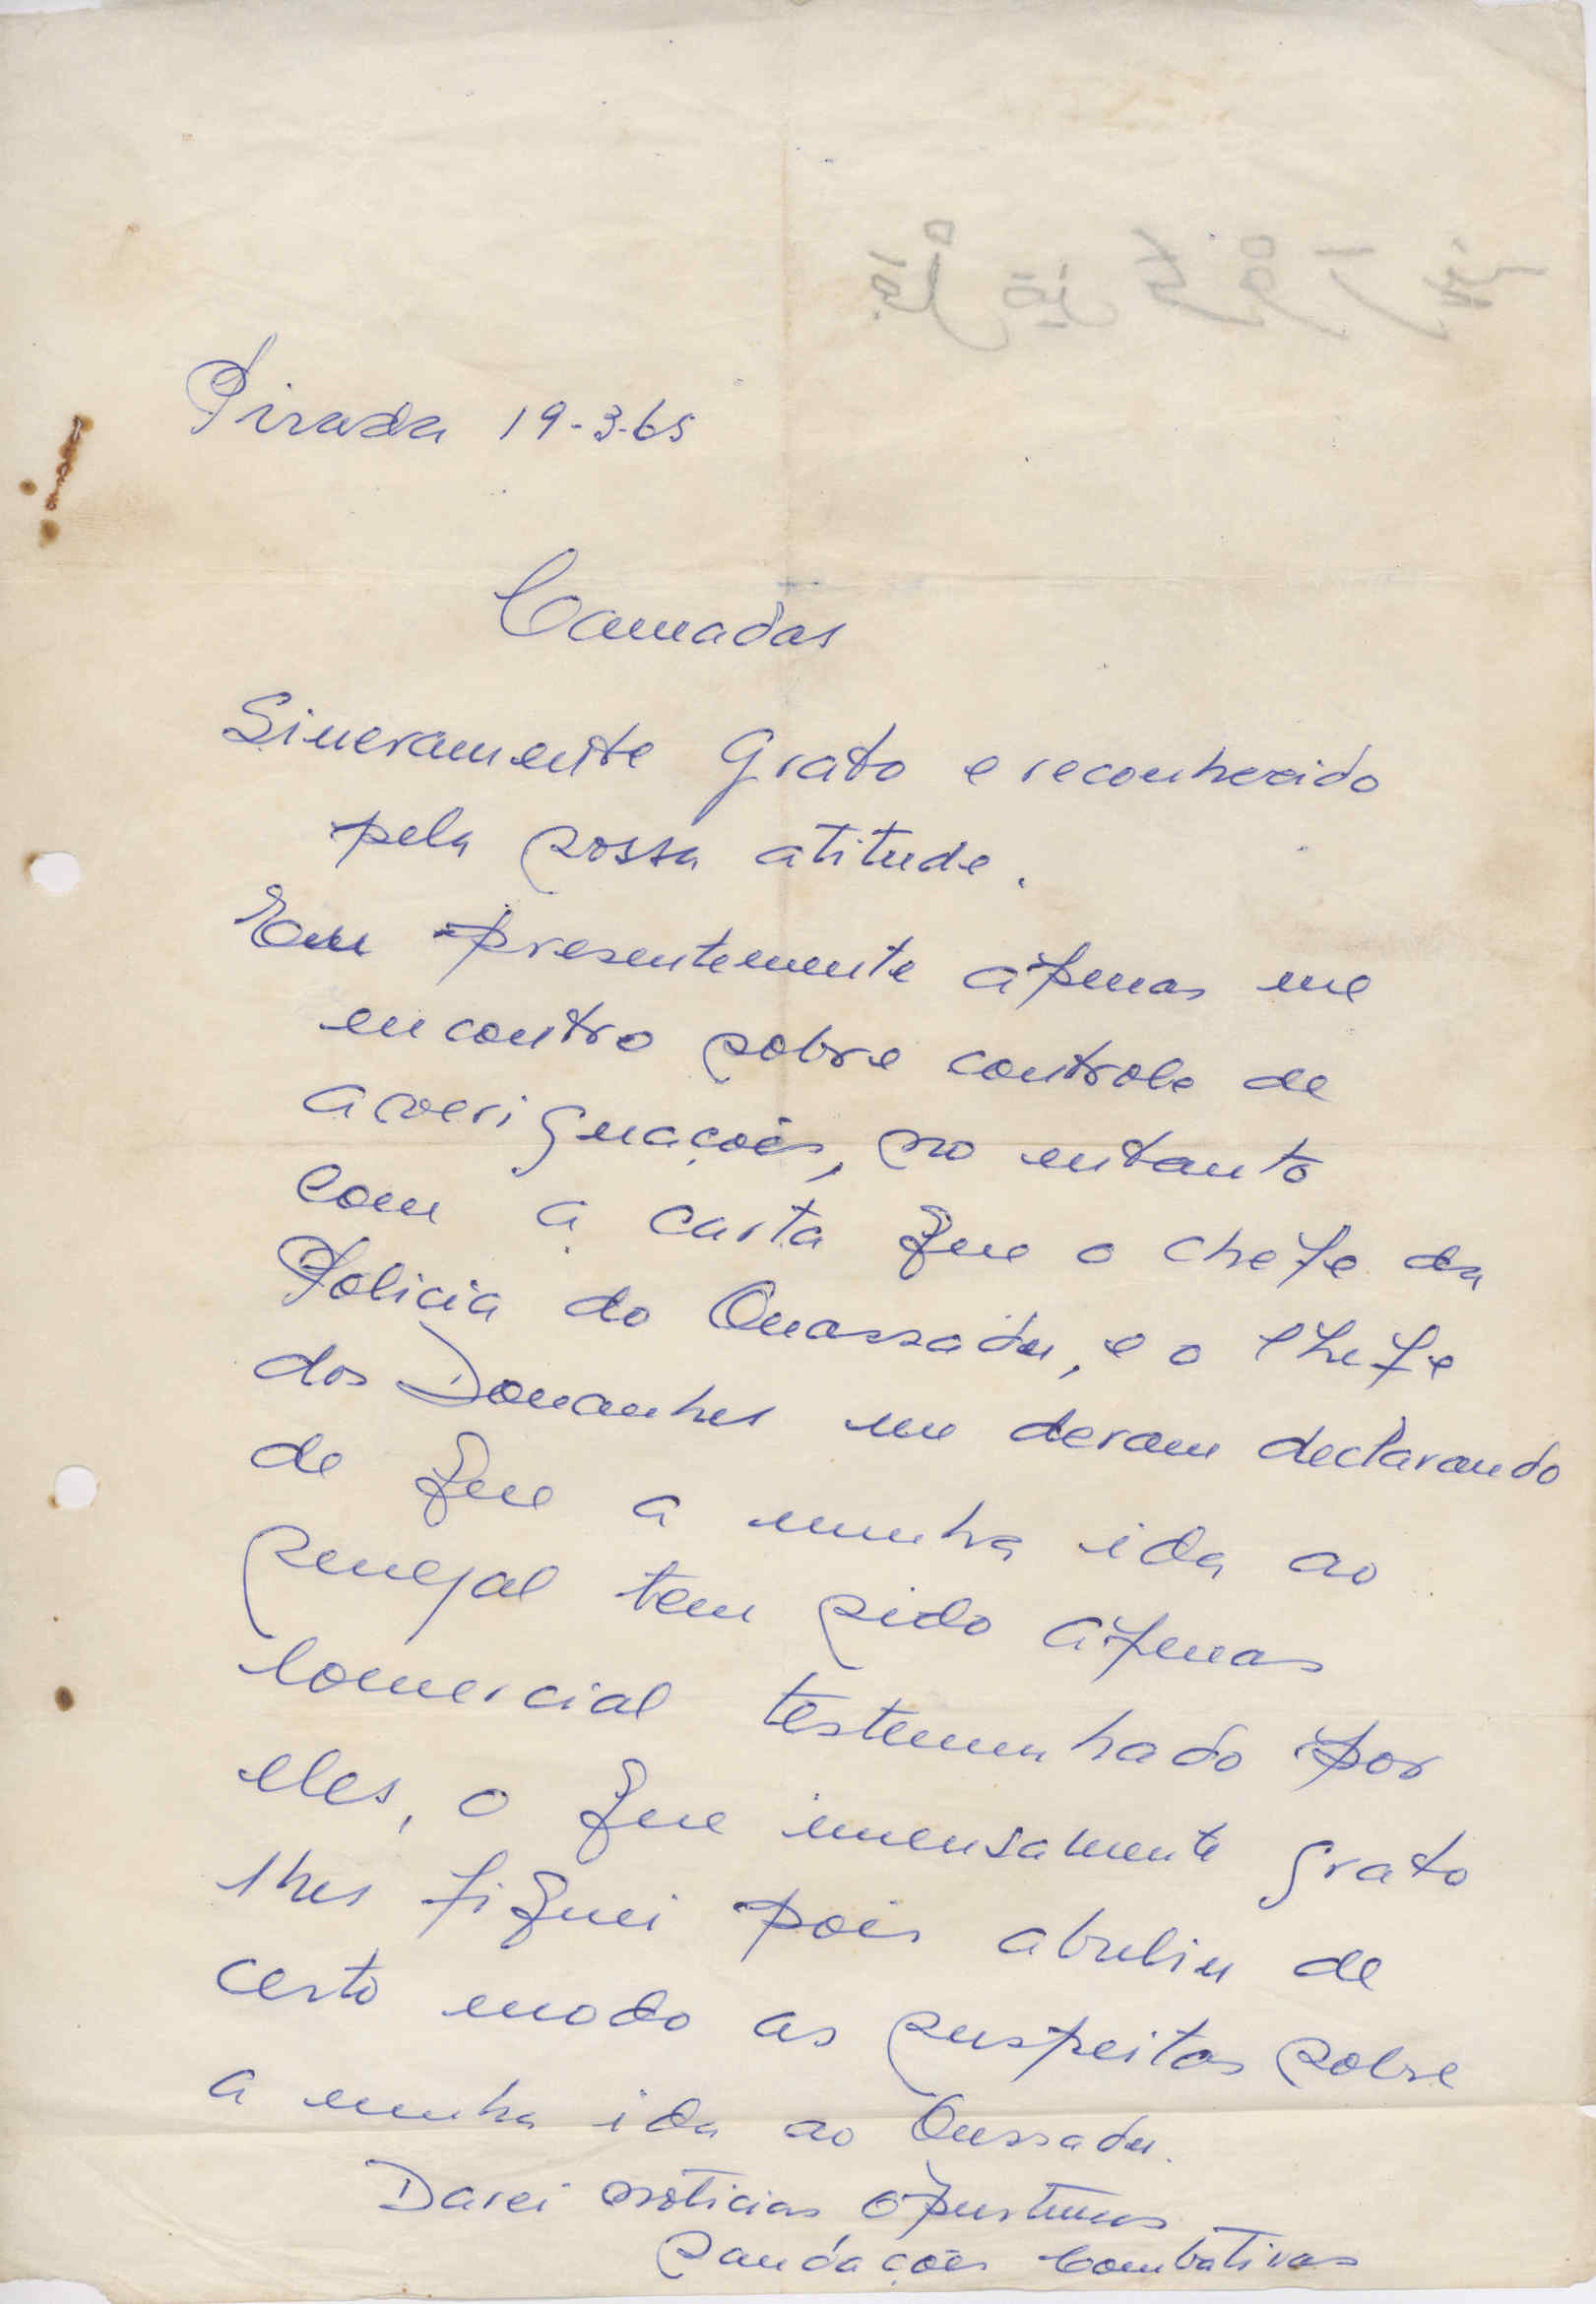 Pirada 19-3-65
Camadas
Sinceramente Grato e reconhecido
pela vossa atitude.
Eu presentemente apenas me
encontro sobre controle de
averiguações, no entanto
com a carta que o chefe da
Policia do Ouassadu, e o chefe
dos Douanhes me deram declarando
de que a minha ida ao
senegal tem sido apenas
comercial testemunhado por
eles, o que imensamente grato
lhes fiquei pois abuliu de
certo modo as suspeitas sobre
a minha ida ao Oussadu.
Darei noticias opurtunas
saudações Combativas